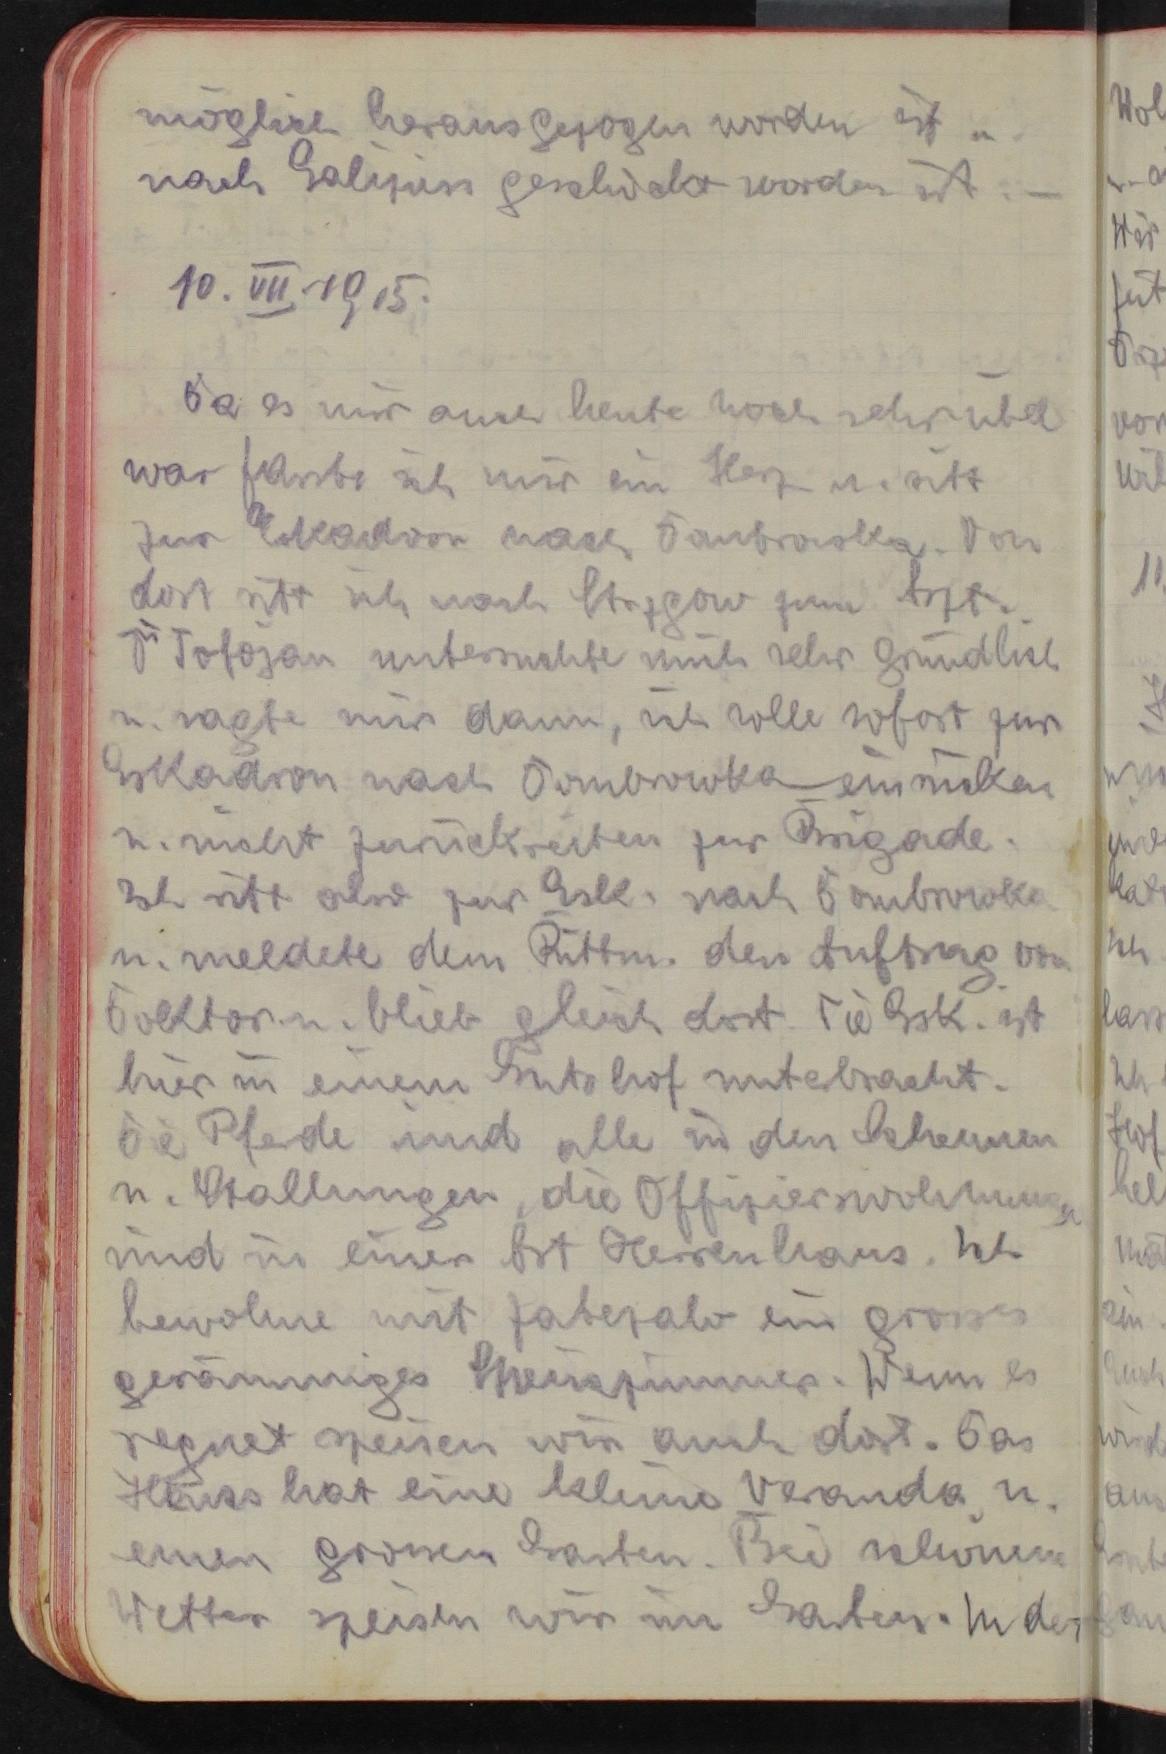 möglich herausgezogen worden ist u.
nach Galizien geschickt worden ist. —
10. VII. 1915.
Da es mir auch heute noch sehr übel
war fasste ich mir ein Herz u. ritt
zur Eskadron nach Dombrowka. Von
dort ritt ich nach zum Arzt.
Dr untersuchte mich sehr gründlich
u. sagte mir dann, ich solle sofort zur
Eskadron nach Dombrowka einrücken
u. nicht zurückreiten zur Brigade.
Ich ritt also zur Esk. nach Dombrowka
u. meldete dem Rittm. den Auftrag von
Doktor u. blieb gleich dort. Die Esk. ist
hier in einem Gutshof untebracht.
Die Pferde sind alle in den Scheunen
u. Stallungen, die Offizierswohnungen
sind in einer Art Herrenhaus. Ich
bewohne mit ein grosses
geräumiges Speisezimmer. Wenn es
regnet speisen wir auch dort. Das
Haus hat eine kleine Veranda u.
einen grossen Garten. Bei schönem
Wetter speisen wir im Garten. In der